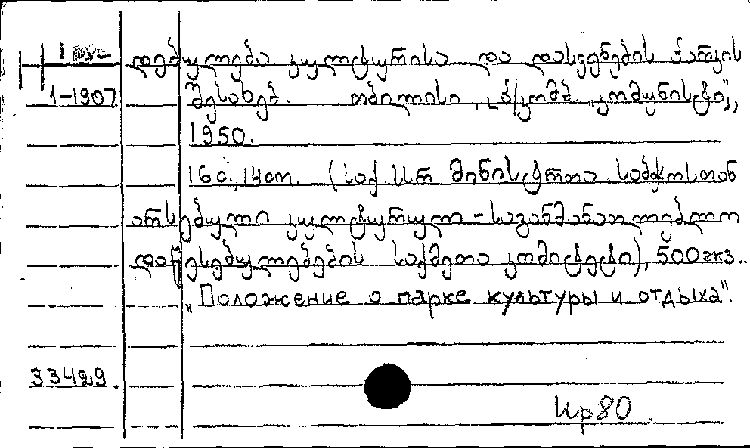 დებულება კულტურისა და დასვენების პარკის
1-1907 შესახებ. თბილისი, „პ/კომბ. „კომუნისტი“,
1950.
16 с., 14 см. (საქ. სსრ მინისტრთა საბჭოსთან
არსებული კულტურულ-საგანმანათლებლო
დაწესებულებების საქმეთა კომიტეტი), 500 ეკზ.
„Положение о парке культуры и отдыха“.
33429.
Ир80